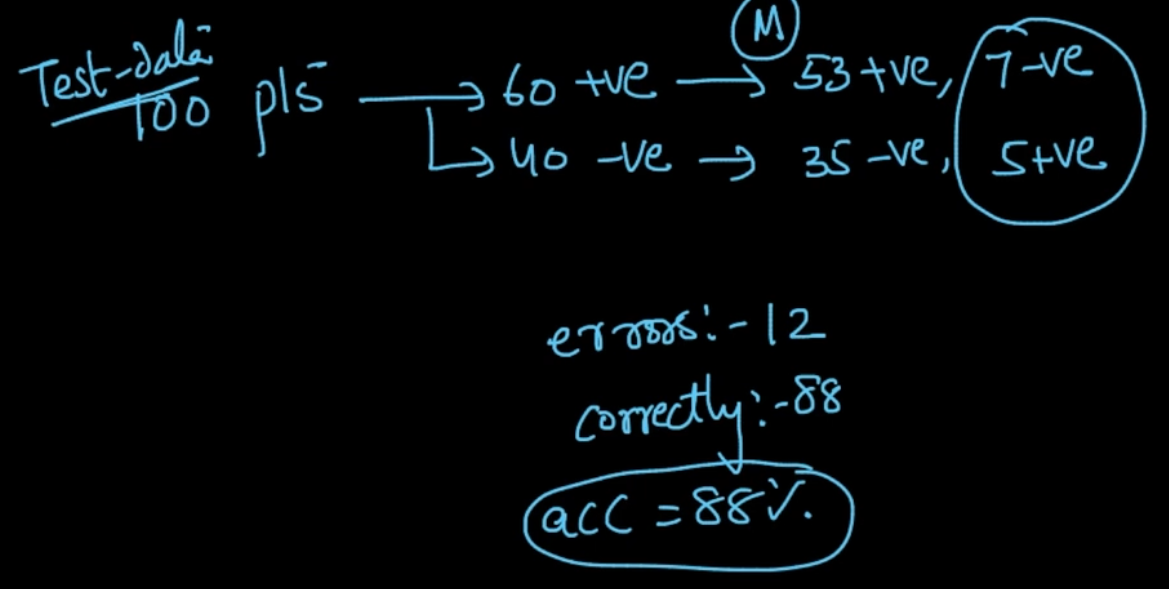 Test-data
100 pts → 60 +ve → (M) 53 +ve, 7 -ve
↳ 40 -ve → 35 -ve, 5 +ve
errors:- 12
correctly:- 88
acc = 88%.